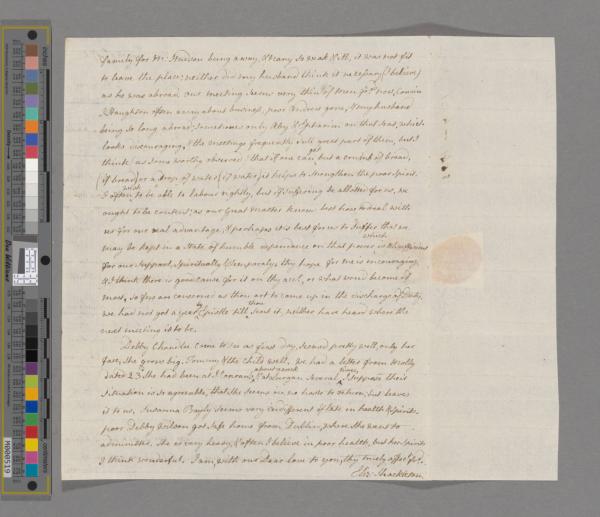 family for Mr. being away, & Mary so weak & ill, it was not fit
to leave the place; neither did my husband think it necessary (I believe)
as he was abroad. our meeting seems very thin of men frds. now, Cousin
Haughton often away about business, poor Andrew gone, & my husband
being so long abroad; sometimes only Aby & Ephraim on that seat, which
looks discouraging, & the meetings frequently dull great part of them, but I
think as some worthy observed that if one can get but a crumb of bread,
(if bread) or a drop of water (if water) it helps to strengthen the poor spirit.
I often wish to be able to labour rightly, but if suffering be allotted for us, we
ought to be content; as our great Master knows best how to deal with
us for our real advantage, & perhaps it is best for us to suffer that we
may be kept in a State of humble dependence on that power which
for our Support, Spiritually & temporally. thy hope for me is encouraging
& I think there is good cause for it on thy acct. or what would become of
most. so few are concerned as thou art to come up in the discharge of Duty.
we had not a yearly Epistle till thou sent it, neither have heard where the
next meeting is to be.
Debby Chandlee came to see us first day, seemed pretty well, only her
face, she grows big. Tommy & the Child well. we had a letter from Molly
dated 23d. she had been at about a week, & at Lurgan several times, I suppose their
situation is so agreeable, that she seems in no haste to return, but leaves
it to us. Susanna Bayly seems very indifferent of late in health & Spirits.
poor Debby Wilson got safe home from Dublin, where she went to
administer. she is very heavy, & often I believe in poor health, but her Spirits
I think wonderful. I am, with our Dear love to you, thy truly affect. frd.
Eliz: Shackleton
inches
Density
Don Williams
centimetres
M000519